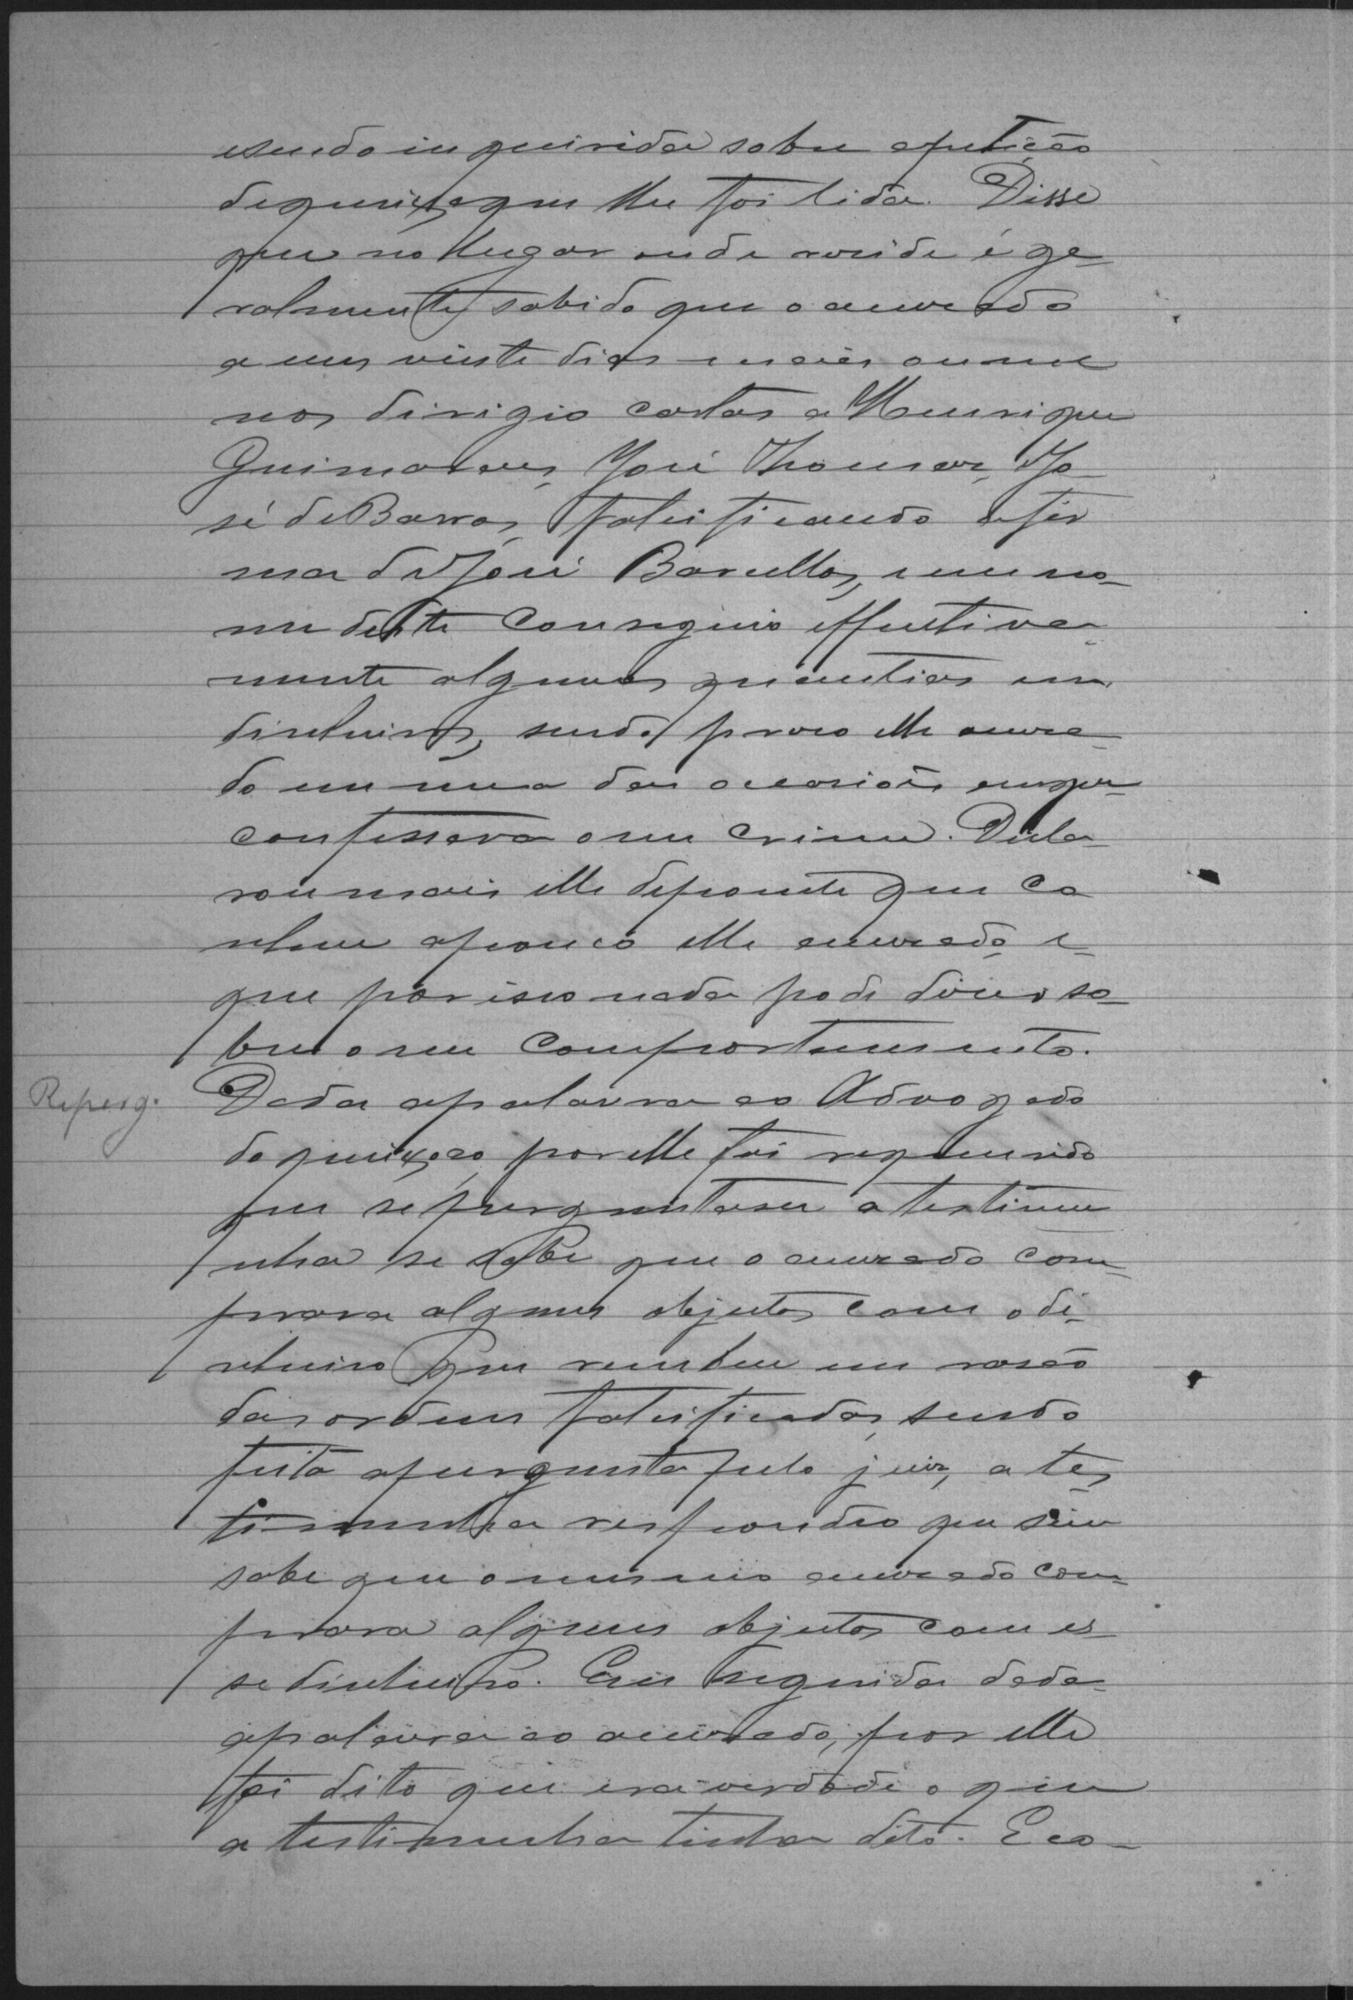 esendo inquirida sobre apetição
dequeixa que lhe foi lida. Disse
que no lugar onde reside é ge-
ralmente sabido que o accusado
a uns vinte dias mais ou me
nos dirigio cartas a Henrique
Guimarães, José Thomaz, Jo-
sé de Barros, falsificando a fir
ma de José Barcellos, e em no-
me deste conseguio effectiva-
mente algumas quantias em
dinheiro, sendo preso elle accusa-
do em uma das occasiões em que
confessava o seu crime. Decla-
rou mais elle depoente que co
nhece apouco elle accusado e
que por isso nada pode dizer so-
bre o seu comportamento.
Reperg. Dada apalavra ao Advogado
do queixoso, por elle foi requerido
que se perguntasse a testimu
nha se sabe que o accusado com-
prara alguns objectos com o di-
nheiro que recebeu em rasão
das ordens falsificadas, sendo
feita apergunta pelo juiz, a tes
timunha respondeo que sim
sabe que o mesmo accusado com-
prara alguns objectos com es-
se dinheiro. Em seguida dada
apalavra ao accusado, por elle
foi dito que era verdade o que
a testimunha tinha dito. E co-